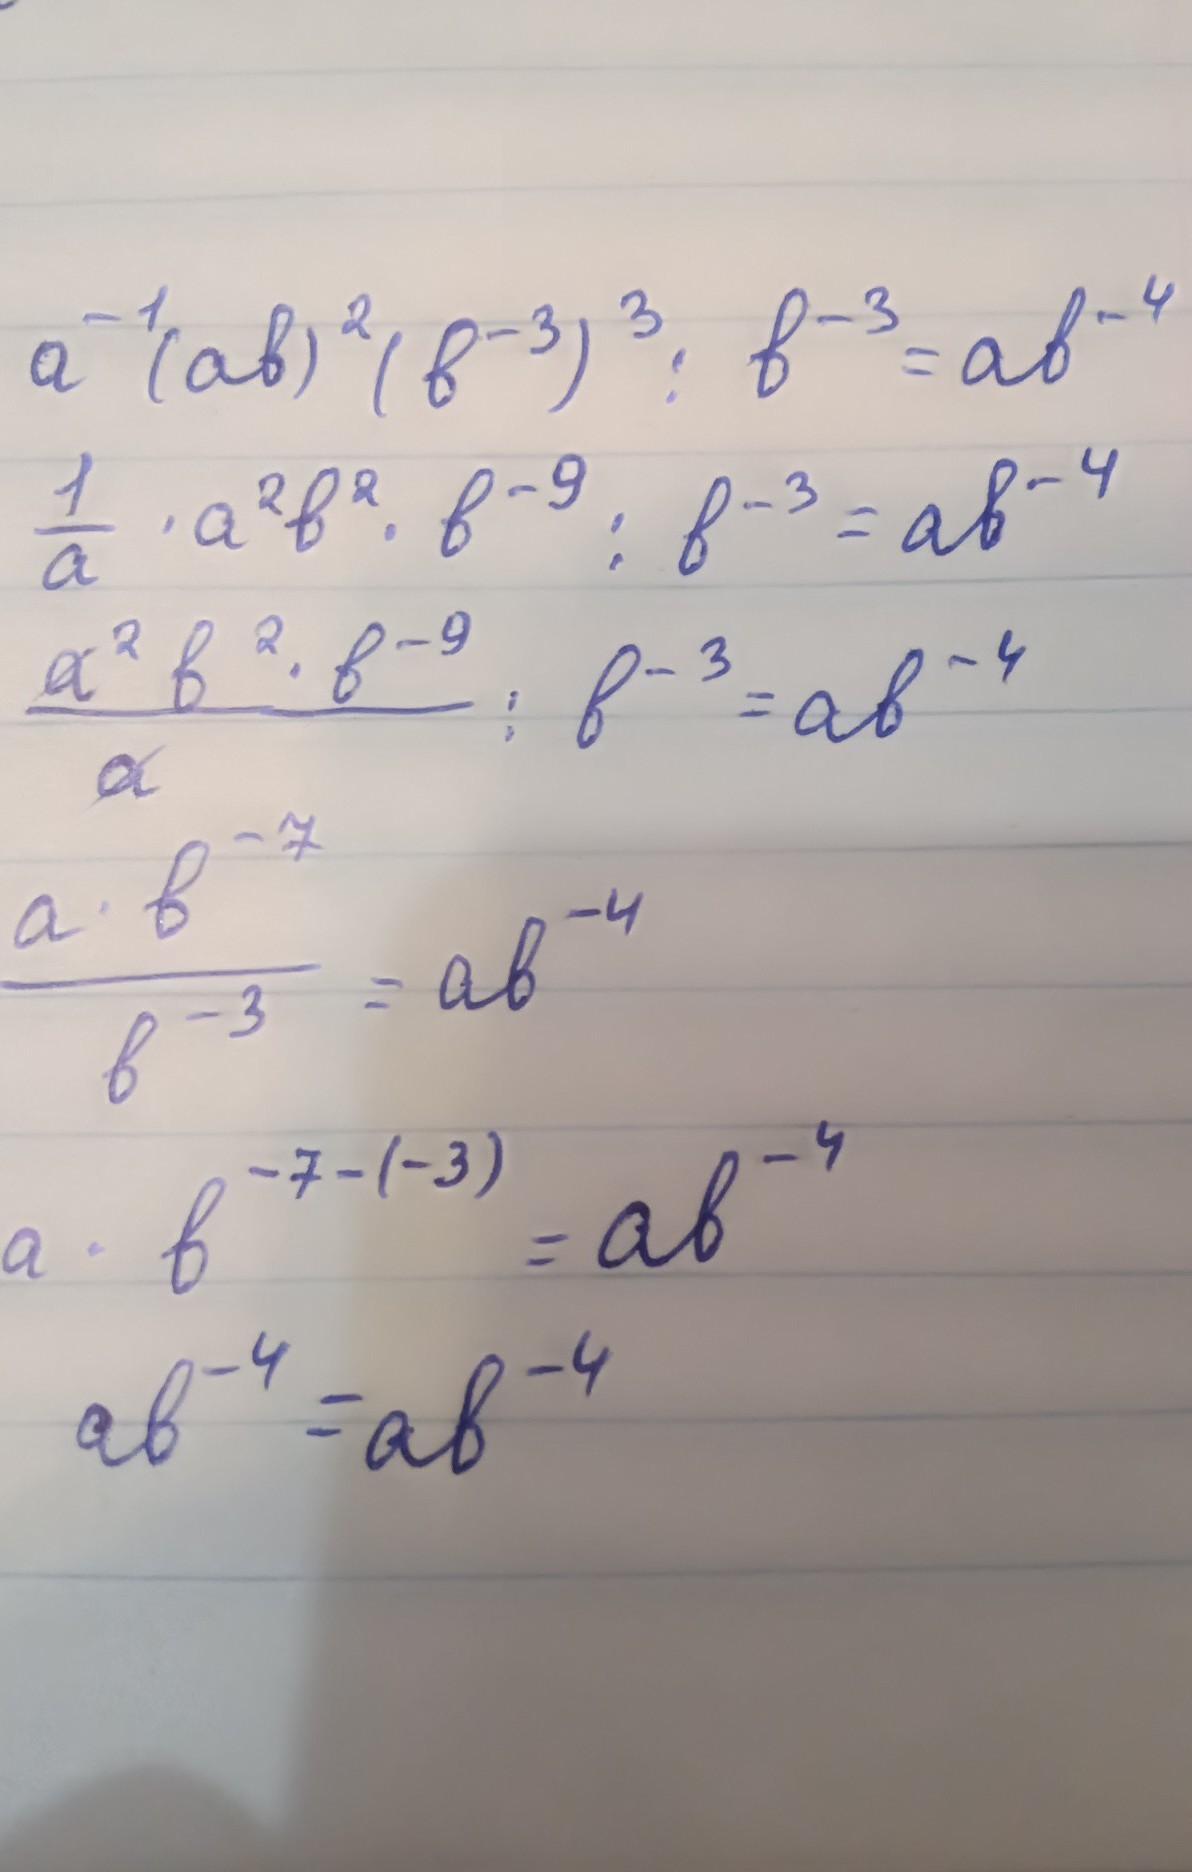 a⁻¹(ab)²(b⁻³)³ : b⁻³ = ab⁻⁴
1/a · a²b² · b⁻⁹ : b⁻³ = ab⁻⁴
a²b² · b⁻⁹ / a : b⁻³ = ab⁻⁴
a · b⁻⁷ / b⁻³ = ab⁻⁴
a · b^(-7-(-3)) = ab⁻⁴
ab⁻⁴ = ab⁻⁴